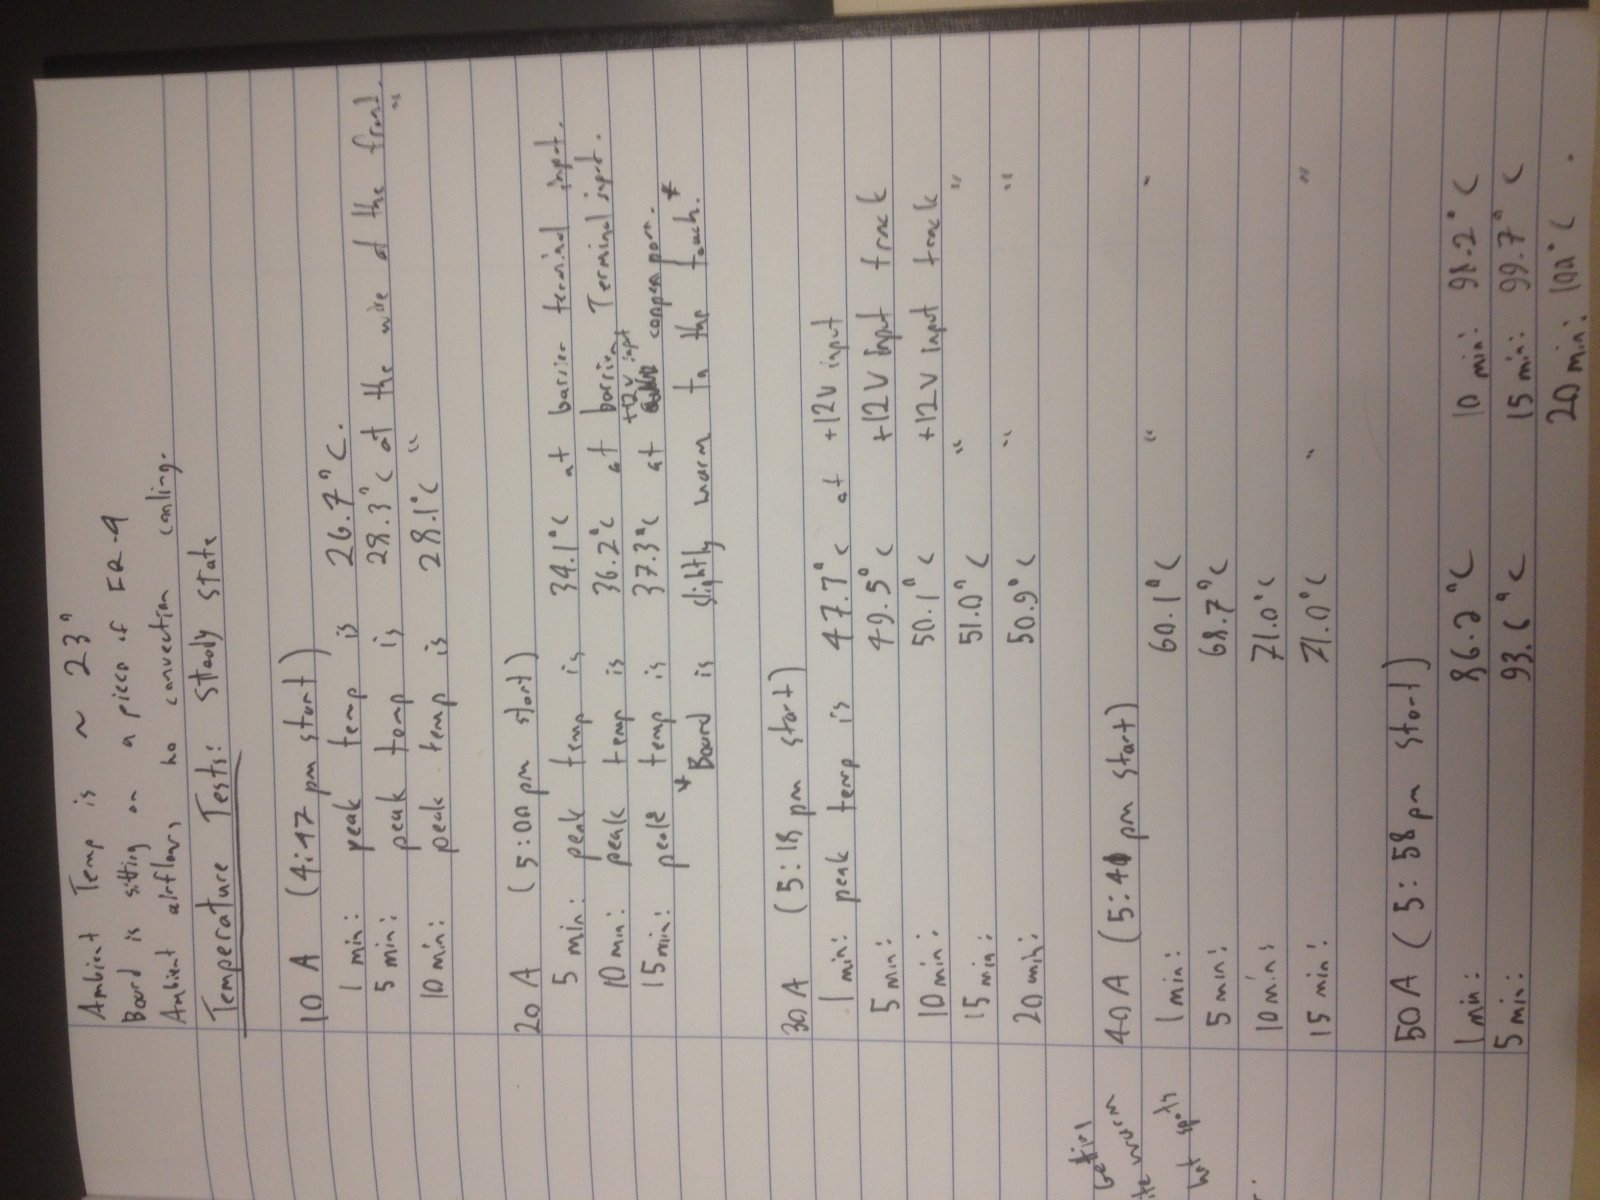 Ambient Temp is ~ 23°
Board is sitting on a piece of FR-4
Ambient airflow, no convection cooling.
Temperature Tests: Steady state
10 A (4:47 pm start)
1 min: peak temp is 26.7°C.
5 min: peak temp is 28.3°C at the wire at the front.
10 min: peak temp is 28.1°C " "
20 A (5:00 pm start)
5 min: peak temp is 34.1°C at barrier terminal input.
10 min: peak temp is 36.2°C at barrier Terminal input.
15 min: peak temp is 37.3°C at +12V input copper pour.
* Board is slightly warm to the touch. *
30 A (5:18 pm start)
1 min: peak temp is 47.7°C at +12V input
5 min: 49.5°C +12V input track
10 min: 50.1°C +12V input track
15 min: 51.0°C " "
20 min: 50.9°C " "
40 A (5:40 pm start)
1 min: 60.1°C " "
5 min: 68.7°C
10 min: 71.0°C
15 min: 71.0°C " "
Getting
warm
hot spots
50 A (5:58 pm start)
1 min: 86.2°C 10 min: 98.2°C
5 min: 93.6°C 15 min: 99.7°C
20 min: 100°C.